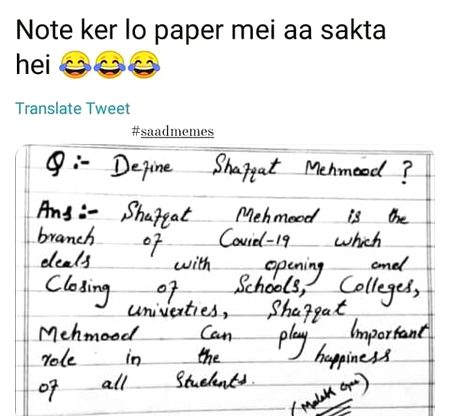 Note ker lo paper mei aa sakta
hei 😂😂😂
Translate Tweet
#saadmemes
Q :- Define Shafqat Mehmood ?
Ans :- Shafqat Mehmood is the
branch of Covid-19 which
deals with opening and
Closing of Schools, Colleges,
univerties, Shafqat
Mehmood Can play Important
role in the happiness
of all Students.